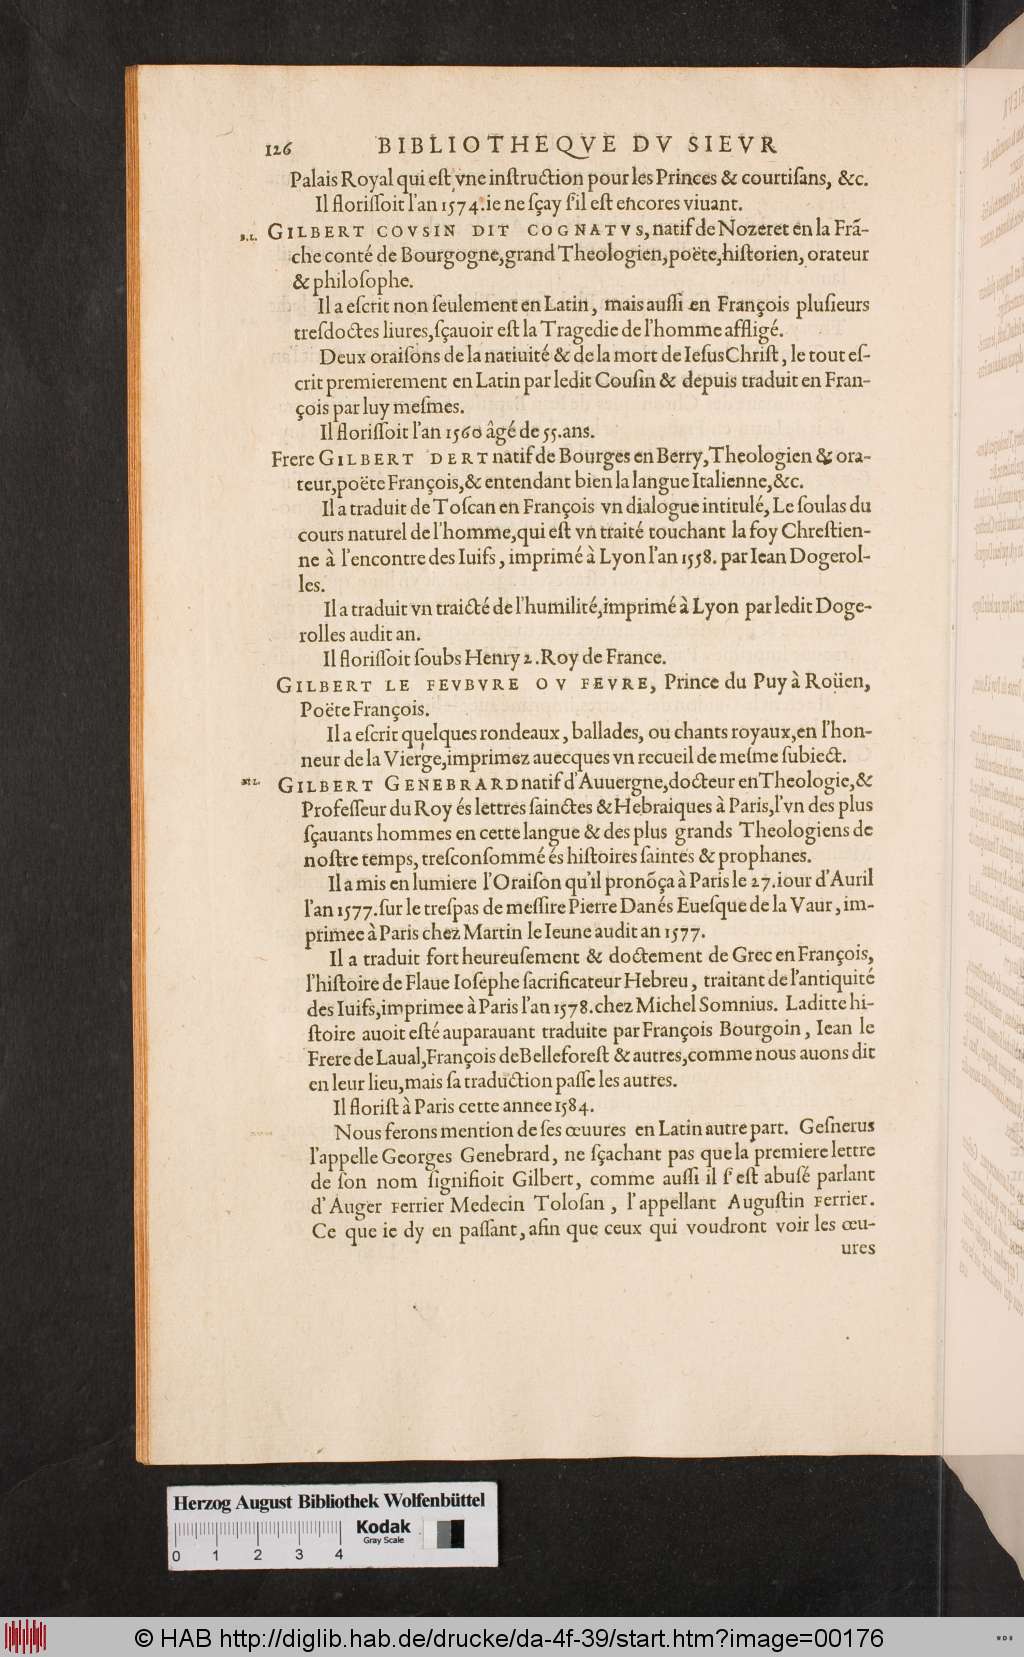 126 BIBLIOTHEQVE DV SIEVR
Palais Royal qui eſt vne inſtruction pour les Princes & courtiſans, &c.
Il floriſſoit l'an 1574. ie ne ſçay ſ'il eſt encores viuant.
B.L. GILBERT COVSIN DIT COGNATVS, natif de Nozeret en la Frã-
che conté de Bourgogne, grand Theologien, poëte, hiſtorien, orateur
& philoſophe.
Il a eſcrit non ſeulement en Latin, mais auſſi en François pluſieurs
treſdoctes liures, ſçauoir eſt la Tragedie de l'homme affligé.
Deux oraiſons de la natiuité & de la mort de Ieſus Chriſt, le tout eſ-
crit premierement en Latin par ledit Couſin & depuis traduit en Fran-
çois par luy meſmes.
Il floriſſoit l'an 1560 âgé de 55. ans.
Frere GILBERT DERT natif de Bourges en Berry, Theologien & ora-
teur, poëte François, & entendant bien la langue Italienne, &c.
Il a traduit de Toſcan en François vn dialogue intitulé, Le ſoulas du
cours naturel de l'homme, qui eſt vn traité touchant la foy Chreſtien-
ne à l'encontre des Iuifs, imprimé à Lyon l'an 1558. par Iean Dogerol-
les.
Il a traduit vn traicté de l'humilité, imprimé à Lyon par ledit Doge-
rolles audit an.
Il floriſſoit ſoubs Henry 2. Roy de France.
GILBERT LE FEVBVRE OV FEVRE, Prince du Puy à Roüen,
Poëte François.
Il a eſcrit quelques rondeaux, ballades, ou chants royaux, en l'hon-
neur de la Vierge, imprimez auecques vn recueil de meſme ſubiect.
GILBERT GENEBRARD natif d'Auuergne, docteur en Theologie, &
Profeſſeur du Roy és lettres ſainctes & Hebraiques à Paris, l'vn des plus
ſçauants hommes en cette langue & des plus grands Theologiens de
noſtre temps, treſconſommé és hiſtoires ſaintes & prophanes.
Il a mis en lumiere l'Oraiſon qu'il pronõça à Paris le 27. iour d'Auril
l'an 1577. ſur le treſpas de meſſire Pierre Danés Eueſque de la Vaur, im-
primee à Paris chez Martin le Ieune audit an 1577.
Il a traduit fort heureuſement & doctement de Grec en François,
l'hiſtoire de Flaue Ioſephe ſacrificateur Hebreu, traitant de l'antiquité
des Iuifs, imprimee à Paris l'an 1578. chez Michel Somnius. Laditte hi-
ſtoire auoit eſté auparauant traduite par François Bourgoin, Iean le
Frere de Laual, François de Belleforeſt & autres, comme nous auons dit
en leur lieu, mais ſa traduction paſſe les autres.
Il floriſt à Paris cette annee 1584.
Nous ferons mention de ſes œuures en Latin autre part. Geſnerus
l'appelle Georges Genebrard, ne ſçachant pas que la premiere lettre
de ſon nom ſignifioit Gilbert, comme auſſi il ſ'eſt abuſé parlant
d'Auger Ferrier Medecin Toloſan, l'appellant Auguſtin Ferrier.
Ce que ie dy en paſſant, afin que ceux qui voudront voir les œu-
ures
Herzog August Bibliothek Wolfenbüttel
Kodak
Gray Scale
0 1 2 3 4
© HAB http://diglib.hab.de/drucke/da-4f-39/start.htm?image=00176